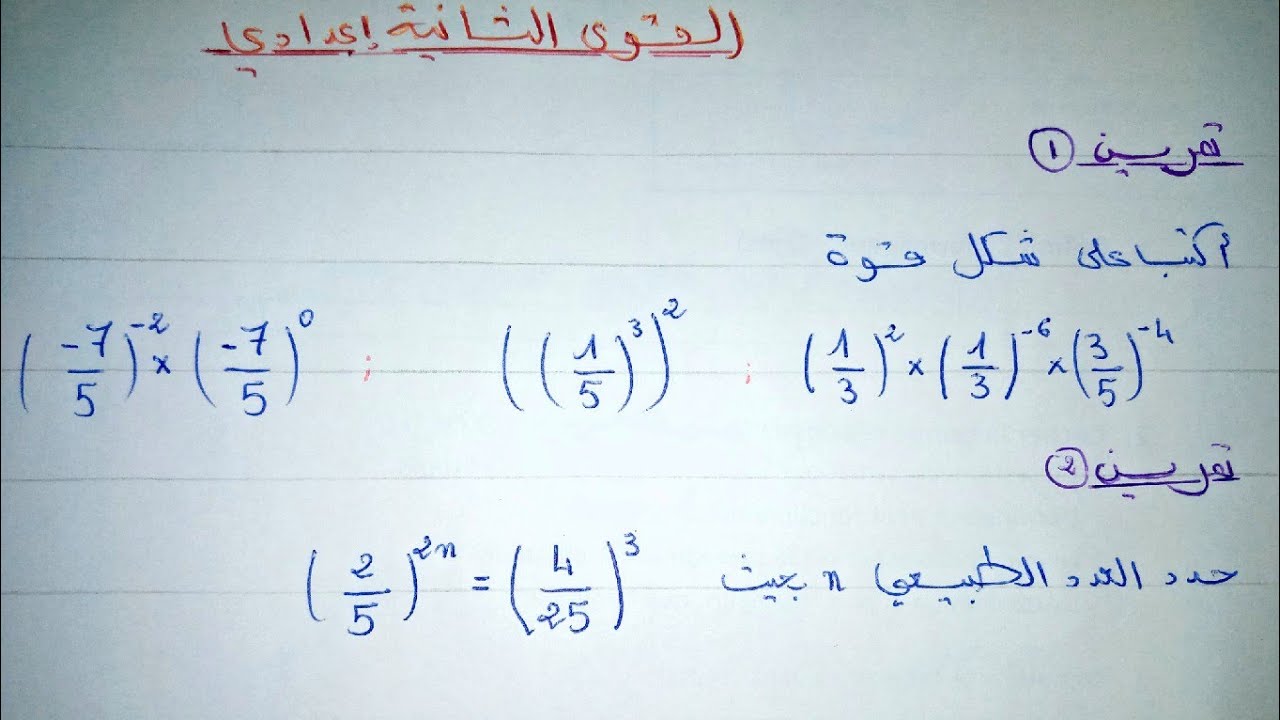 القوى الثانية إعدادي
تمرين ①
أكتب على شكل قوة
(1/3)² × (1/3)⁻⁶ × (3/5)⁻⁴ ; ((1/5)³)² ; (-7/5)⁻² × (-7/5)⁰
تمرين ②
حدد العدد الطبيعي n بحيث (2/5)²ⁿ = (4/25)³